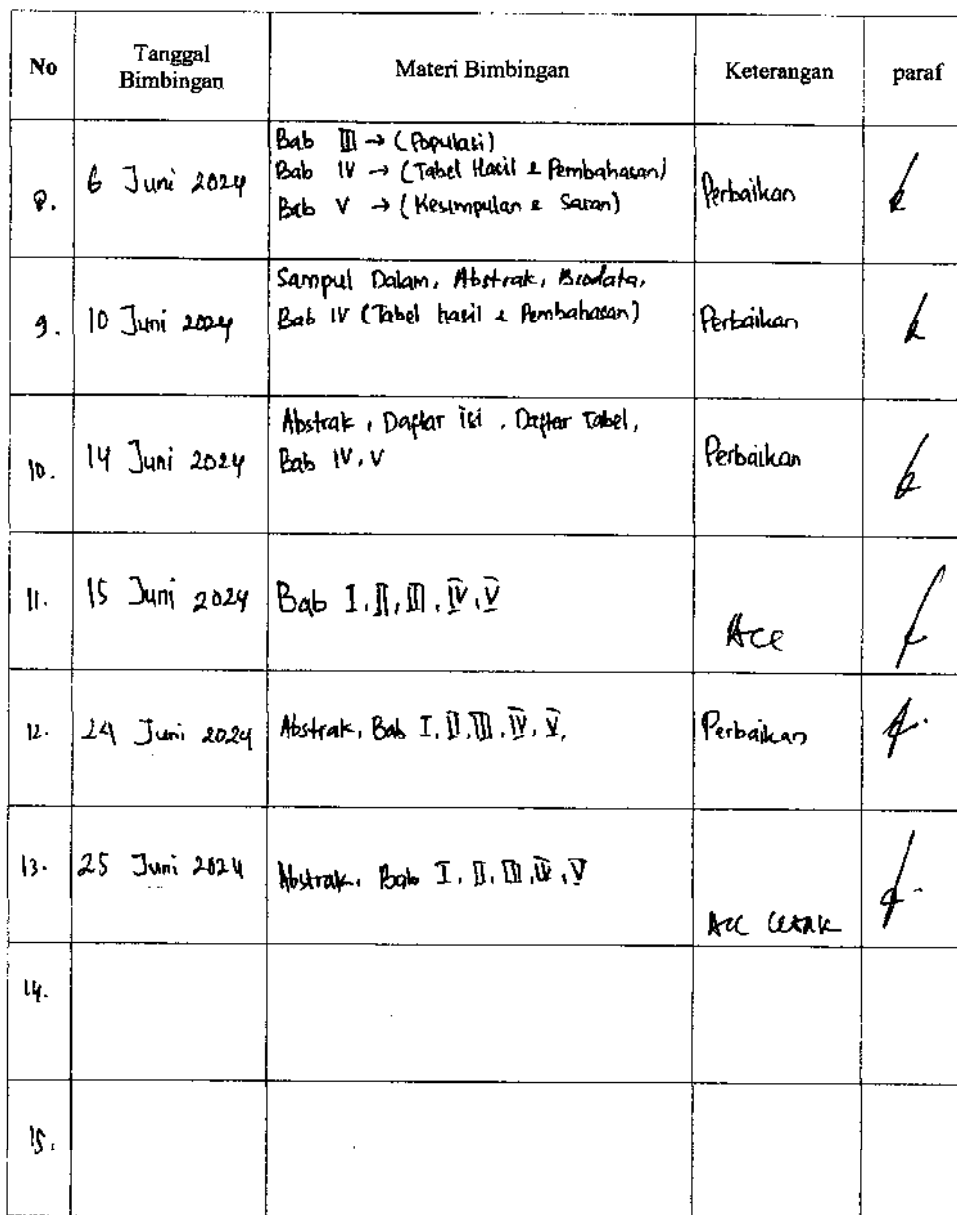 No
Tanggal
Bimbingan
Materi Bimbingan
Keterangan
paraf
8.
6 Juni 2024
Bab III → (Populasi)
Bab IV → (Tabel Hasil & Pembahasan)
Bab V → (Kesimpulan & Saran)
Perbaikan
9.
10 Juni 2024
Sampul Dalam, Abstrak, Biodata,
Bab IV (Tabel hasil & Pembahasan)
Perbaikan
10.
14 Juni 2024
Abstrak, Daftar isi, Daftar Tabel,
Bab IV, V
Perbaikan
11.
15 Juni 2024
Bab I, II, III, IV, V
Acc
12.
24 Juni 2024
Abstrak, Bab I, II, III, IV, V,
Perbaikan
13.
25 Juni 2024
Abstrak, Bab I, II, III, IV, V
Acc CETAK
14.
15.